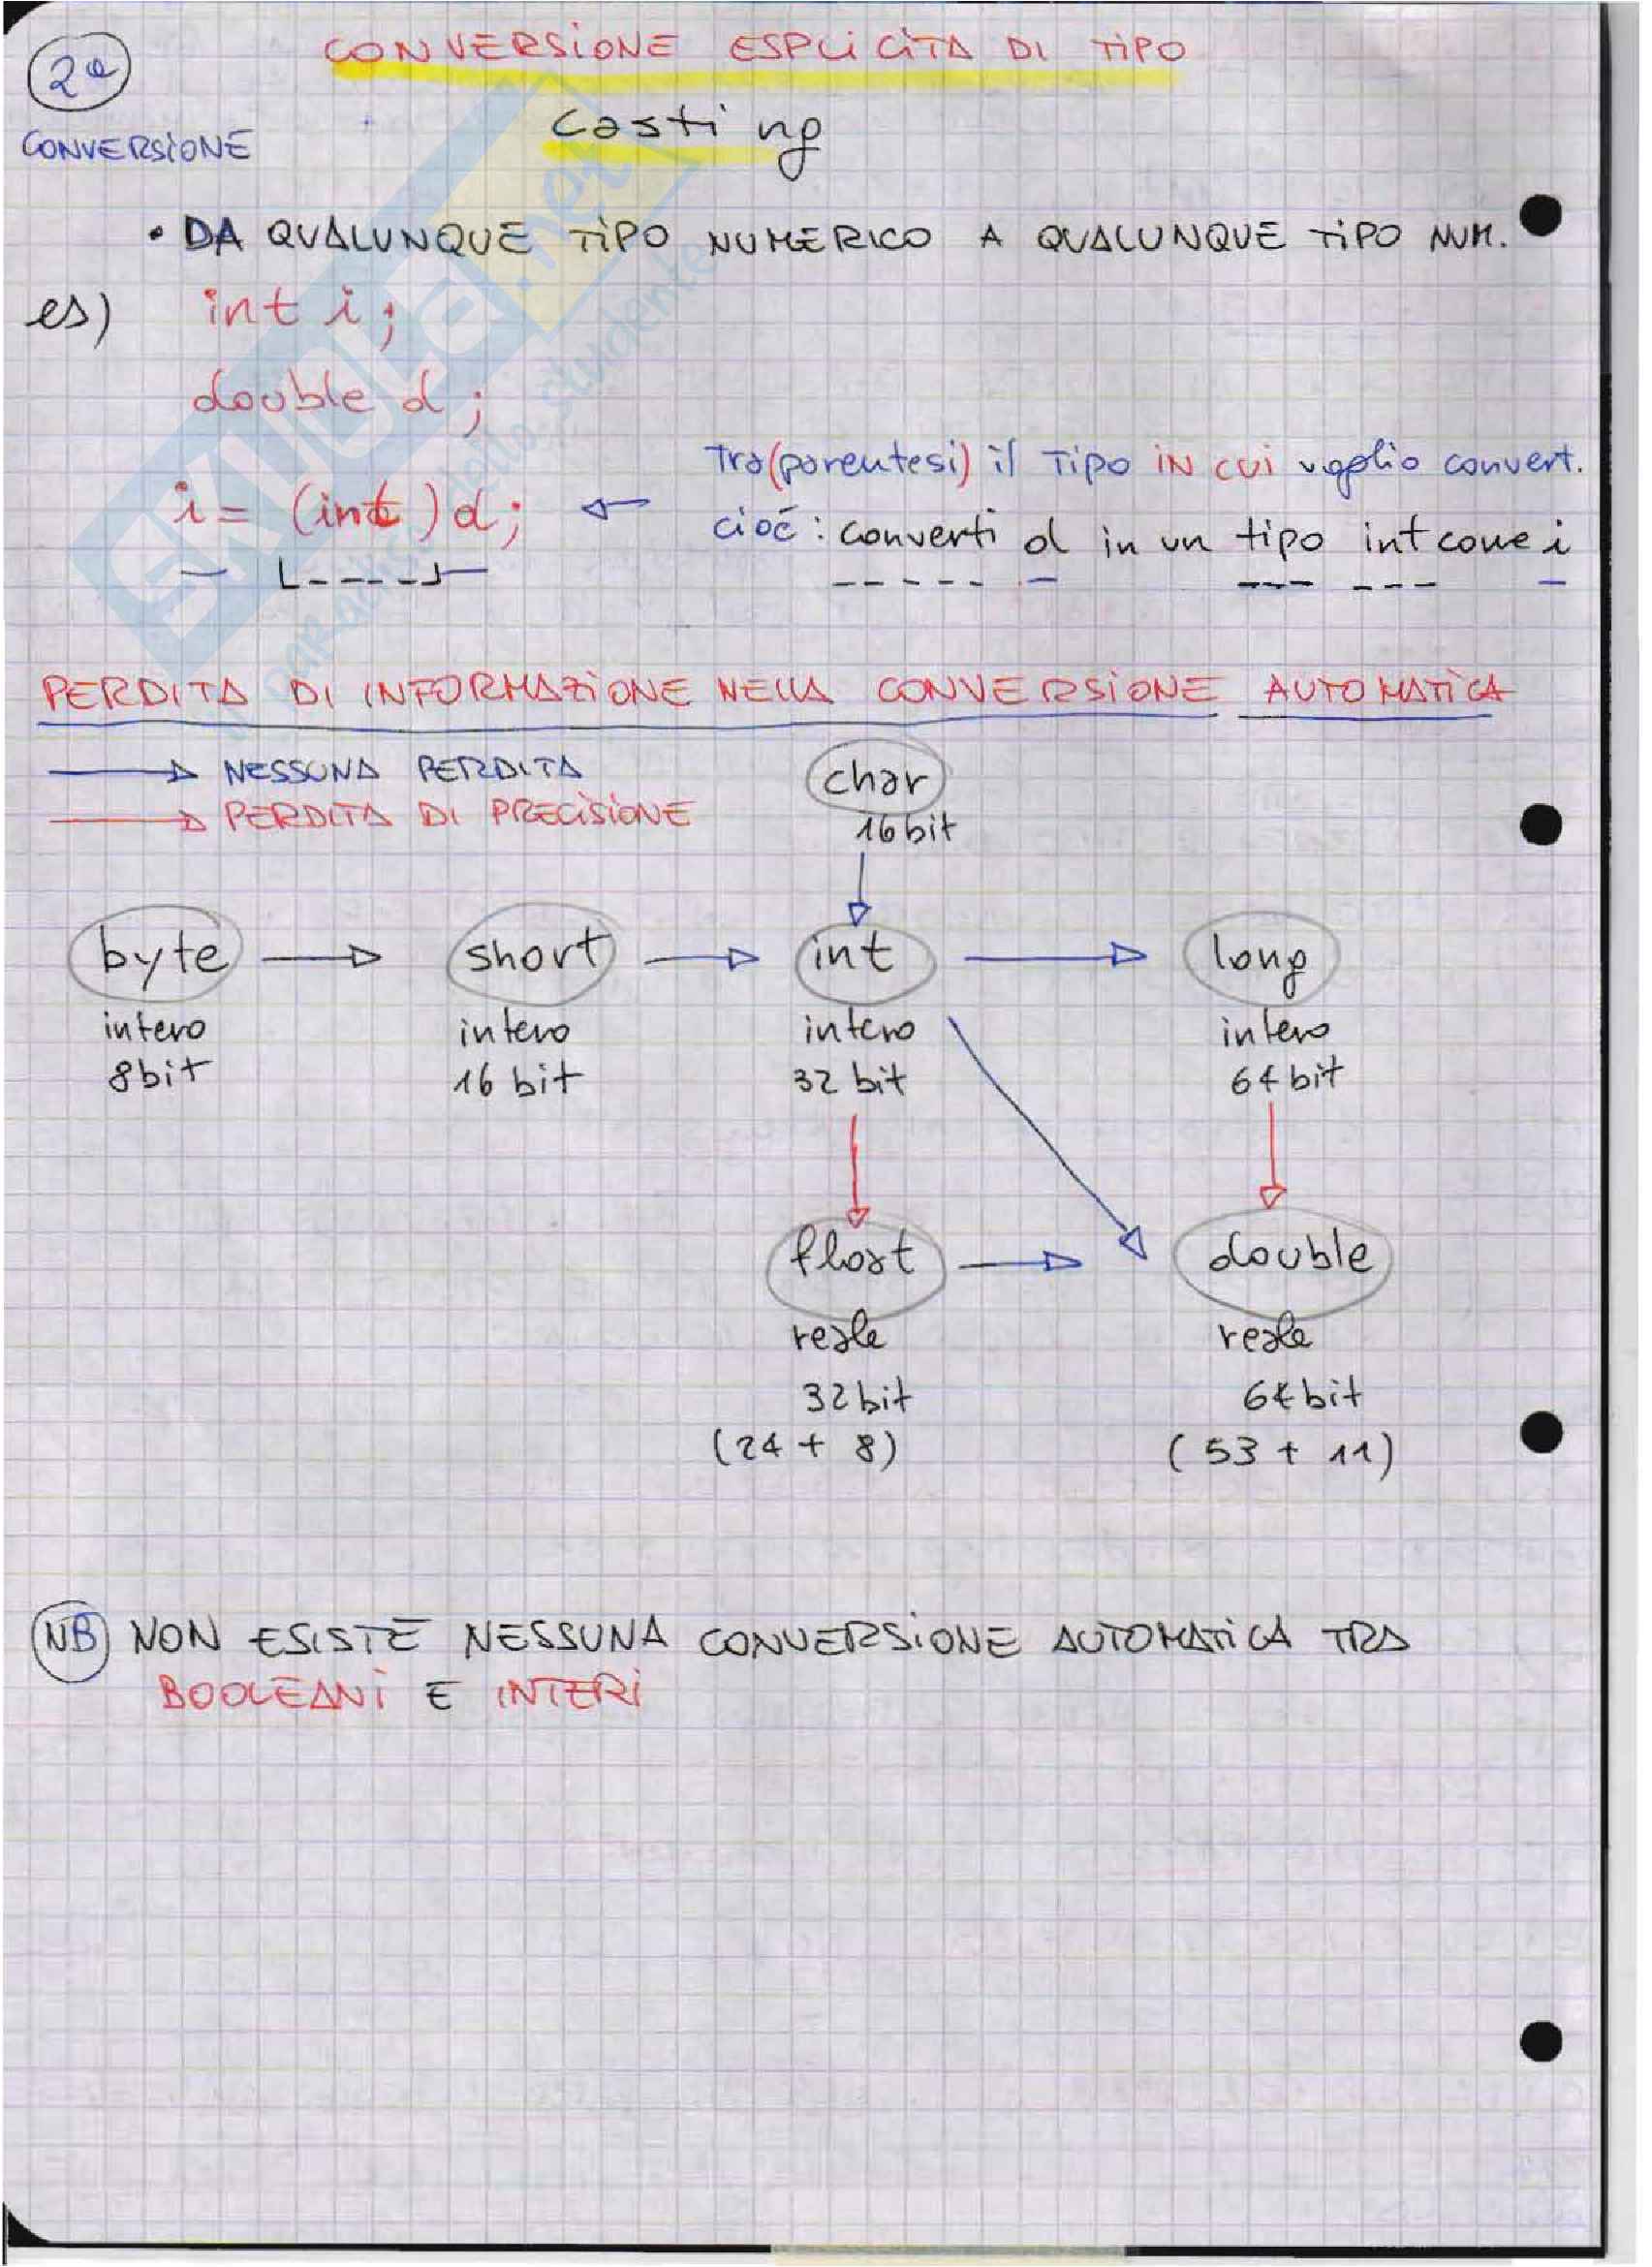 2a
CONVERSIONE ESPLICITA DI TIPO
CONVERSIONE
Casting
• DA QUALUNQUE TIPO NUMERICO A QUALUNQUE TIPO NUM.
es) int i;
double d;
Tra (parentesi) il TIPO IN cui voglio convert.
i = (int) d;
cioé: converti d in un tipo int come i
PERDITA DI INFORMAZIONE NELLA CONVERSIONE AUTOMATICA
NESSUNA PERDITA
PERDITA DI PRECISIONE
char
16 bit
byte short int long
intero intero intero intero
8 bit 16 bit 32 bit 64 bit
float double
reale reale
32 bit 64 bit
(24 + 8) (53 + 11)
NB NON ESISTE NESSUNA CONVERSIONE AUTOMATICA TRA
BOOLEANI E INTERI
SKUOLA.net
il paradiso dello studente